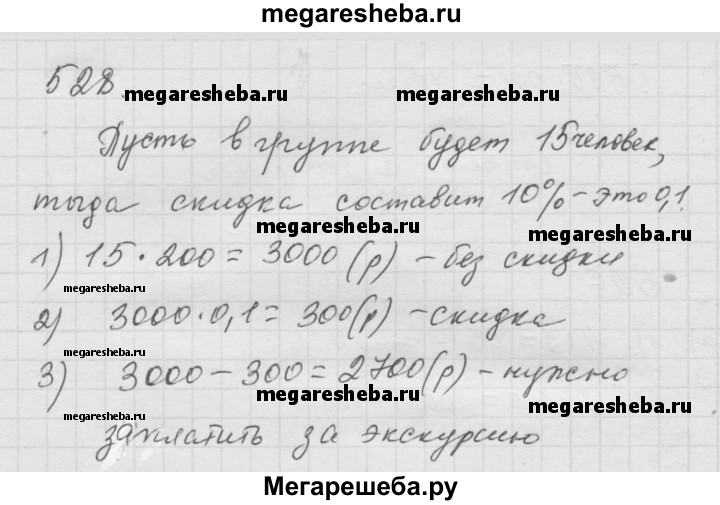 megaresheba.ru
528
megaresheba.ru megaresheba.ru
Пусть в группе будет 15 человек,
тогда скидка составит 10% – это 0,1.
megaresheba.ru
1) 15 · 200 = 3000 (р) – без скидки
megaresheba.ru megaresheba.ru
2) 3000 · 0,1 = 300 (р) – скидка
megaresheba.ru
3) 3000 – 300 = 2700 (р) – нужно
megaresheba.ru megaresheba.ru
заплатить за экскурсию
Мегарешеба.ру